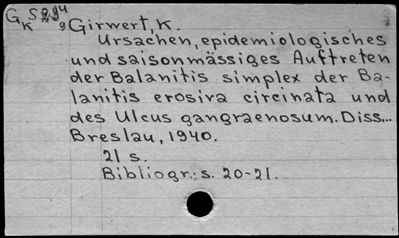 Girwert, K.
Ursachen, epidemiologisches
und saisonmässiges Auftreten
der Balanitis simplex der Ba-
lanitis erosiva circinata und
des Ulcus gangraenosum. Diss...
Breslau, 1940.
21 s.
Bibliogr.: s. 20-21.